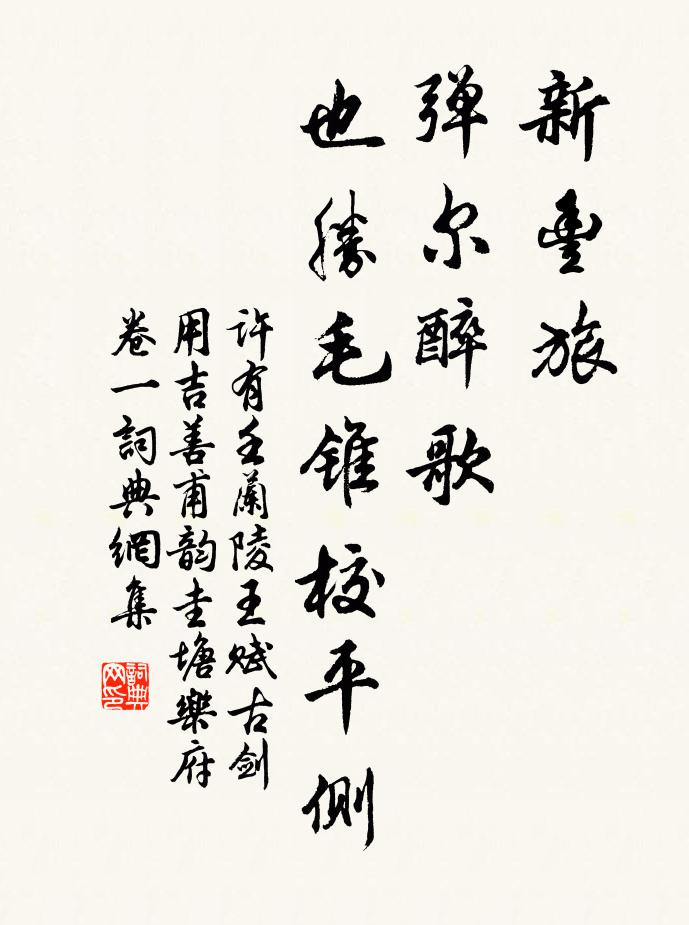 新豊旅
弹尔醉歌
也勝毛锥校平側
许有壬蘭陵王赋古剑
用吉善甫韵圭塘樂府
卷一詞典網集
詞典
网印